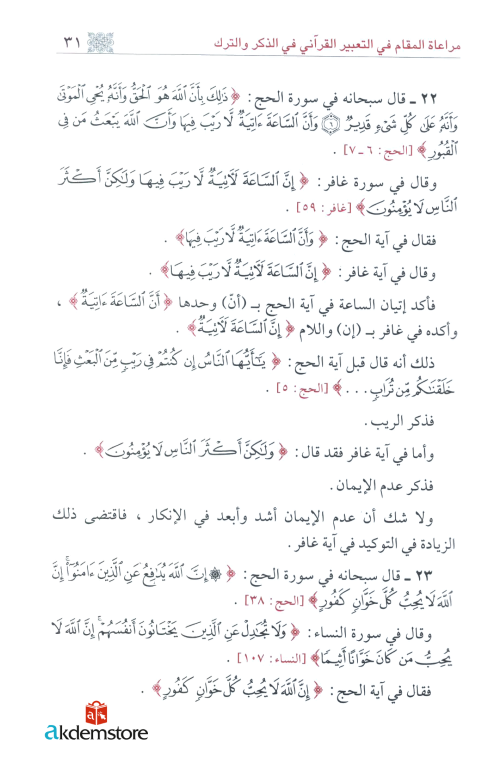 مراعاة المقام في التعبير القرآني في الذكر والترك ٣١
٢٢ ـ قال سبحانه في سورة الحج: ﴿ذَٰلِكَ بِأَنَّ ٱللَّهَ هُوَ ٱلْحَقُّ وَأَنَّهُۥ يُحْىِ ٱلْمَوْتَىٰ
وَأَنَّهُۥ عَلَىٰ كُلِّ شَىْءٍ قَدِيرٌ ۝٦ وَأَنَّ ٱلسَّاعَةَ ءَاتِيَةٌ لَّا رَيْبَ فِيهَا وَأَنَّ ٱللَّهَ يَبْعَثُ مَن فِى
ٱلْقُبُورِ﴾ [الحج: ٦ـ٧].
وقال في سورة غافر: ﴿إِنَّ ٱلسَّاعَةَ لَـَٔاتِيَةٌ لَّا رَيْبَ فِيهَا وَلَـٰكِنَّ أَكْثَرَ
ٱلنَّاسِ لَا يُؤْمِنُونَ﴾ [غافر: ٥٩].
فقال في آية الحج: ﴿وَأَنَّ ٱلسَّاعَةَ ءَاتِيَةٌ لَّا رَيْبَ فِيهَا﴾.
وقال في آية غافر: ﴿إِنَّ ٱلسَّاعَةَ لَـَٔاتِيَةٌ لَّا رَيْبَ فِيهَا﴾.
فأكد إتيان الساعة في آية الحج بـ (أنّ) وحدها ﴿أَنَّ ٱلسَّاعَةَ ءَاتِيَةٌ﴾،
وأكده في غافر بـ (إن) واللام ﴿إِنَّ ٱلسَّاعَةَ لَـَٔاتِيَةٌ﴾.
ذلك أنه قال قبل آية الحج: ﴿يَـٰٓأَيُّهَا ٱلنَّاسُ إِن كُنتُمْ فِى رَيْبٍ مِّنَ ٱلْبَعْثِ فَإِنَّا
خَلَقْنَـٰكُم مِّن تُرَابٍ...﴾ [الحج: ٥].
فذكر الريب.
وأما في آية غافر فقد قال: ﴿وَلَـٰكِنَّ أَكْثَرَ ٱلنَّاسِ لَا يُؤْمِنُونَ﴾.
فذكر عدم الإيمان.
ولا شك أن عدم الإيمان أشد وأبعد في الإنكار، فاقتضى ذلك
الزيادة في التوكيد في آية غافر.
٢٣ ـ قال سبحانه في سورة الحج: ﴿۞ إِنَّ ٱللَّهَ يُدَٰفِعُ عَنِ ٱلَّذِينَ ءَامَنُوٓا۟ إِنَّ
ٱللَّهَ لَا يُحِبُّ كُلَّ خَوَّانٍ كَفُورٍ﴾ [الحج: ٣٨].
وقال في سورة النساء: ﴿وَلَا تُجَـٰدِلْ عَنِ ٱلَّذِينَ يَخْتَانُونَ أَنفُسَهُمْ إِنَّ ٱللَّهَ لَا
يُحِبُّ مَن كَانَ خَوَّانًا أَثِيمًا﴾ [النساء: ١٠٧].
فقال في آية الحج: ﴿إِنَّ ٱللَّهَ لَا يُحِبُّ كُلَّ خَوَّانٍ كَفُورٍ﴾.
akdemstore